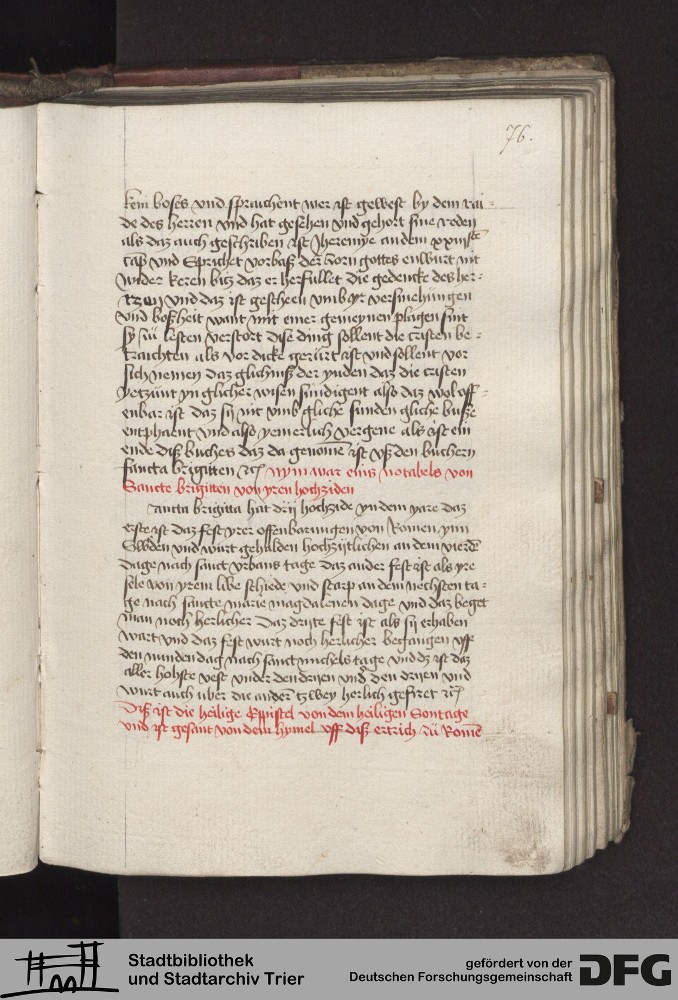 76.
kein boses vnd sprauchent wer ist gewest by dem rai-
de des herren vnd hat gesehen vnd gehort sine reden
als daz auch geschriben ist Jheremye an dem xxiijstē
cap vnd Sprichet vorbaß der zorn gottes enwurt nit
wider keren bitz daz er herfullet die gedencke des her-
tzen vnd daz ist gescheen vmb yr versmehungen
vnd boßheit want mit einer gemeynen plagen sint
sy zü lesten verstort dise ding sollent die cristen be-
traichten als vor dicke gerürt ist vnd sollent vor
sich nemen daz glichniß der ynden daz die cristen
yetzunt yn glicher wisen sundigent also daz wol off-
enbar ist daz sy nit vmb gliche sunden gliche busse
entphaent vnd also yemerlich vergene als ist ein
ende diß buches daz da genomē ist vß den buchern
sancta brigitten etc Nym war eins notabels von
Sancte brigitten von yren hochziden
ancta brigitta hat drij hochzide yn dem yare daz
erste ist daz fest yrer offenbarungen von Romen ynn
Sweden vnd wurt gehalden hochzijtlichen an dem vierdē
dage nach sanct vrbans tage daz ander fest ist als yre
sele von yrem libe schiede vnd starp an dem nechsten ta-
ge nach sancte marie magdalenen dage vnd daz beget
man noch herlicher Daz drijte fest ist als sy erhaben
wart vnd daz fest wurt noch herlicher begangen vff
den nunden dag nach sanct michels tage vnd dz ist daz
aller hohste vest vnder den drijen vnd den drijen vnd
wurt auch uber die anderē tzwey herlich gefiret etc
Diß ist die heilige Eppistel von dem heiligen Sontage
vnd ist gesant von dem hymel vff diß ertrich zü Romē
Stadtbibliothek
und Stadtarchiv Trier
gefördert von der
Deutschen Forschungsgemeinschaft
DFG